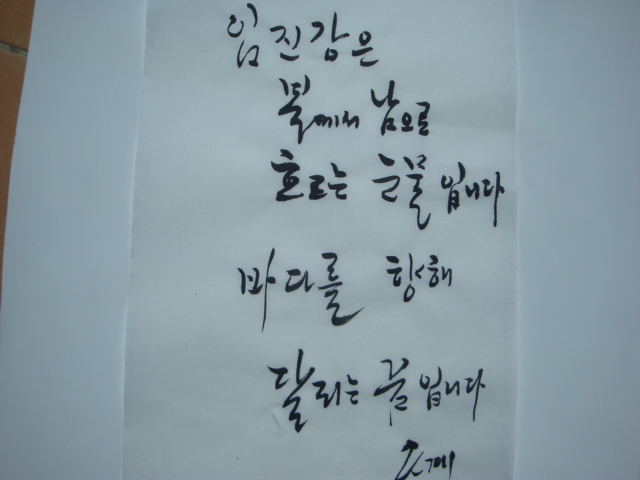 임진강은
북에서 남으로
흐르는 눈물입니다
바다를 향해
달리는 꿈입니다